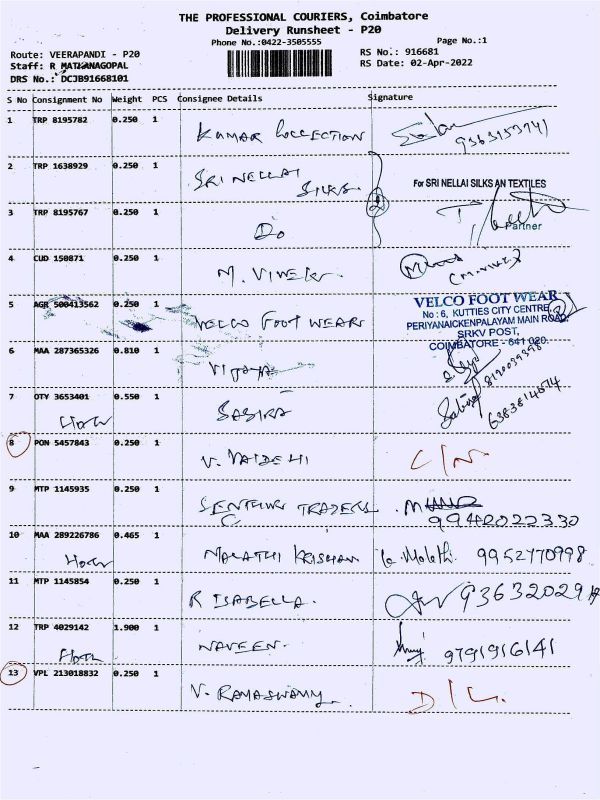 THE PROFESSIONAL COURIERS, Coimbatore
Delivery Runsheet - P20
Phone No.:0422-3505555
Page No.:1
Route: VEERAPANDI - P20
RS No.: 916681
Staff: R MATHANAGOPAL
RS Date: 02-Apr-2022
DRS No.: DCJB91668101
S No Consignment No Weight PCS Consignee Details Signature
1 TRP 8195782 0.250 1 KUMAR COLLECTION 9363153741
2 TRP 1638929 0.250 1 SRI NELLAI SILKS. For SRI NELLAI SILKS AN TEXTILES
3 TRP 8195767 0.250 1 Do Partner
4 CUD 150871 0.250 1 M. VIVEK.
5 AGR 500413562 0.250 1 VELCO FOOT WEAR
VELCO FOOT WEAR
No : 6, KUTTIES CITY CENTRE,
PERIYANAICKENPALAYAM MAIN ROAD,
SRKV POST,
COIMBATORE - 641 020.
6 MAA 287365326 0.810 1 VIJAYA
7 OTY 3653401 0.550 1 SABIRA 6383814674
8 PON 5457843 0.250 1 V. VAIDEHI C/N
9 MTP 1145935 0.250 1 SENTHUR TRADERS 9942022330
10 MAA 289226786 0.465 1 MALATHI KRISHAN 9952770998
11 MTP 1145854 0.250 1 R ISABELLA.
12 TRP 4029142 1.900 1 NAVEEN. 9791916141
13 VPL 213018832 0.250 1 V. RAMASWAMY D/L.